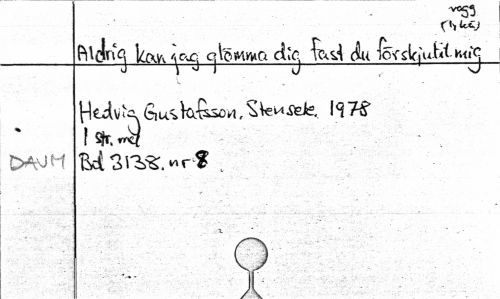 vagg
Aldrig kan jag glömma dig fast du förskjutit mig
Hedvig Gustafsson, Stensele, 1978
1 str. mel
DAUM Bd 3138. nr 8